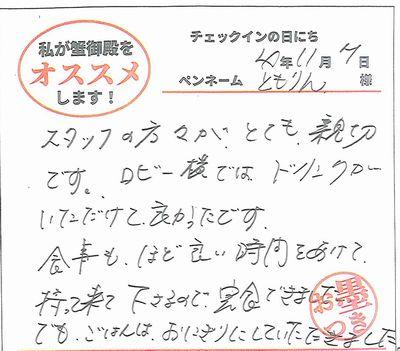 私が蟹御殿を
オススメ
します！
チェックインの日にち
年11月7日
ペンネーム ともりん 様
スタッフの方々が、とても、親切
です。ロビー横では ドリンクも
いただけて、良かったです
食事も、ほど良い時間をあけて、
持って来て下さるので、完食できました
でも、ごはんは、おにぎりにしていただきました。
お墨つき